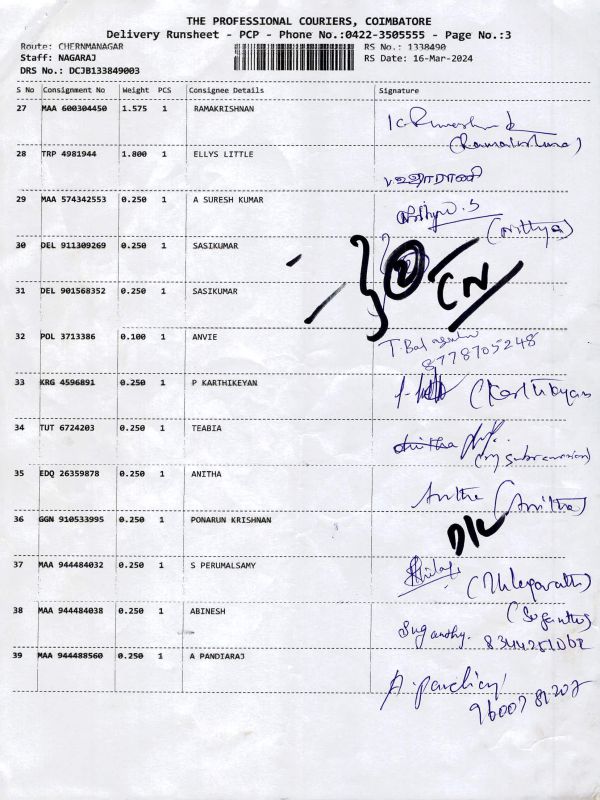 THE PROFESSIONAL COURIERS, COIMBATORE
Delivery Runsheet - PCP - Phone No.:0422-3505555 - Page No.:3
Route: CHERNMANAGAR RS No.: 1338490
Staff: NAGARAJ RS Date: 16-Mar-2024
DRS No.: DCJB133849003
S No Consignment No Weight PCS Consignee Details Signature
27 MAA 600304450 1.575 1 RAMAKRISHNAN
(Ramakrishna)
28 TRP 4981944 1.800 1 ELLYS LITTLE
29 MAA 574342553 0.250 1 A SURESH KUMAR
(Nithya)
30 DEL 911309269 0.250 1 SASIKUMAR
2 CN
31 DEL 901568352 0.250 1 SASIKUMAR
32 POL 3713386 0.100 1 ANVIE
8778705248
33 KRG 4596891 0.250 1 P KARTHIKEYAN
(Karthikeyan
34 TUT 6724203 0.250 1 TEABIA
35 EDQ 26359878 0.250 1 ANITHA
(Anitha)
36 GGN 910533995 0.250 1 PONARUN KRISHNAN
D/L
37 MAA 944484032 0.250 1 S PERUMALSAMY
38 MAA 944484038 0.250 1 ABINESH
Suganthy.
39 MAA 944488560 0.250 1 A PANDIARAJ
A. pandiaraj